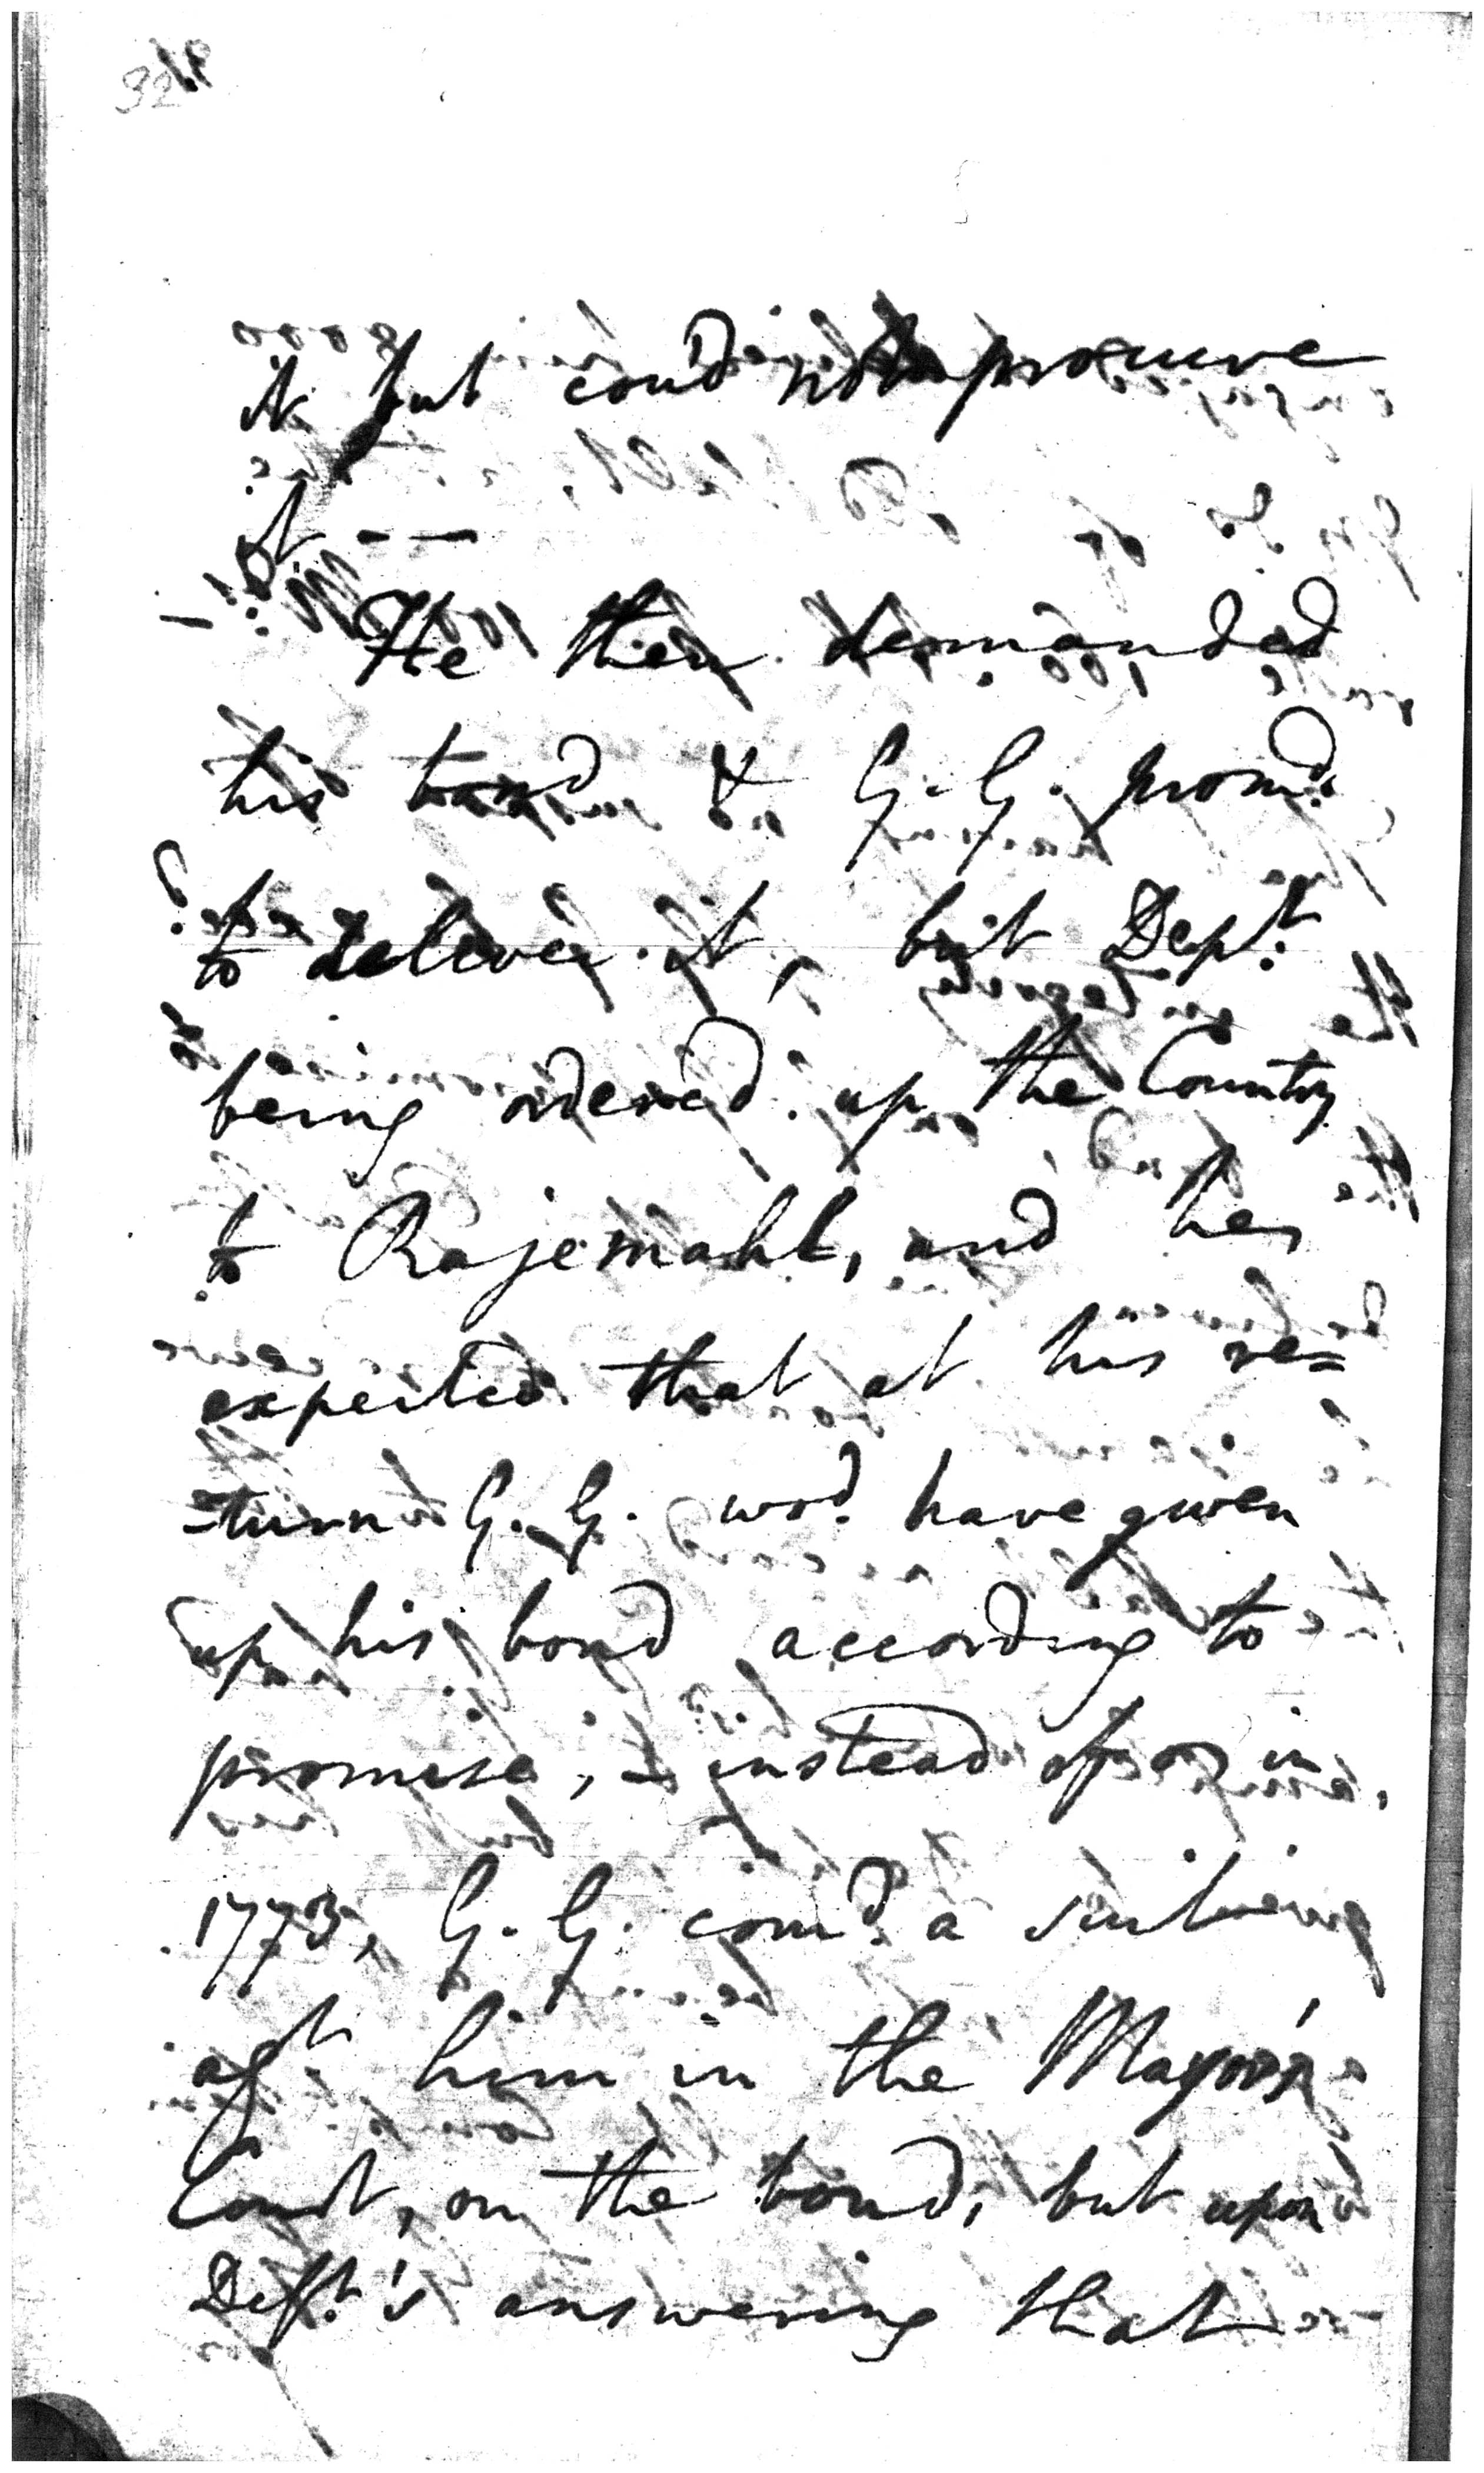 it but cou'd not procure
it. — —
He then demanded
his bond & G. G. prom.d
to deliver it, but Dep.t
being ordered up the Country
to Rajemahl, and he
expected that at his re=
-turn G. G. wo.d have given
up his bond according to
promise, instead of in
1773, G. G. com.d a suit
ag.t him in the Mayor's
Court, on the bond, but upon
Deft.'s answering that